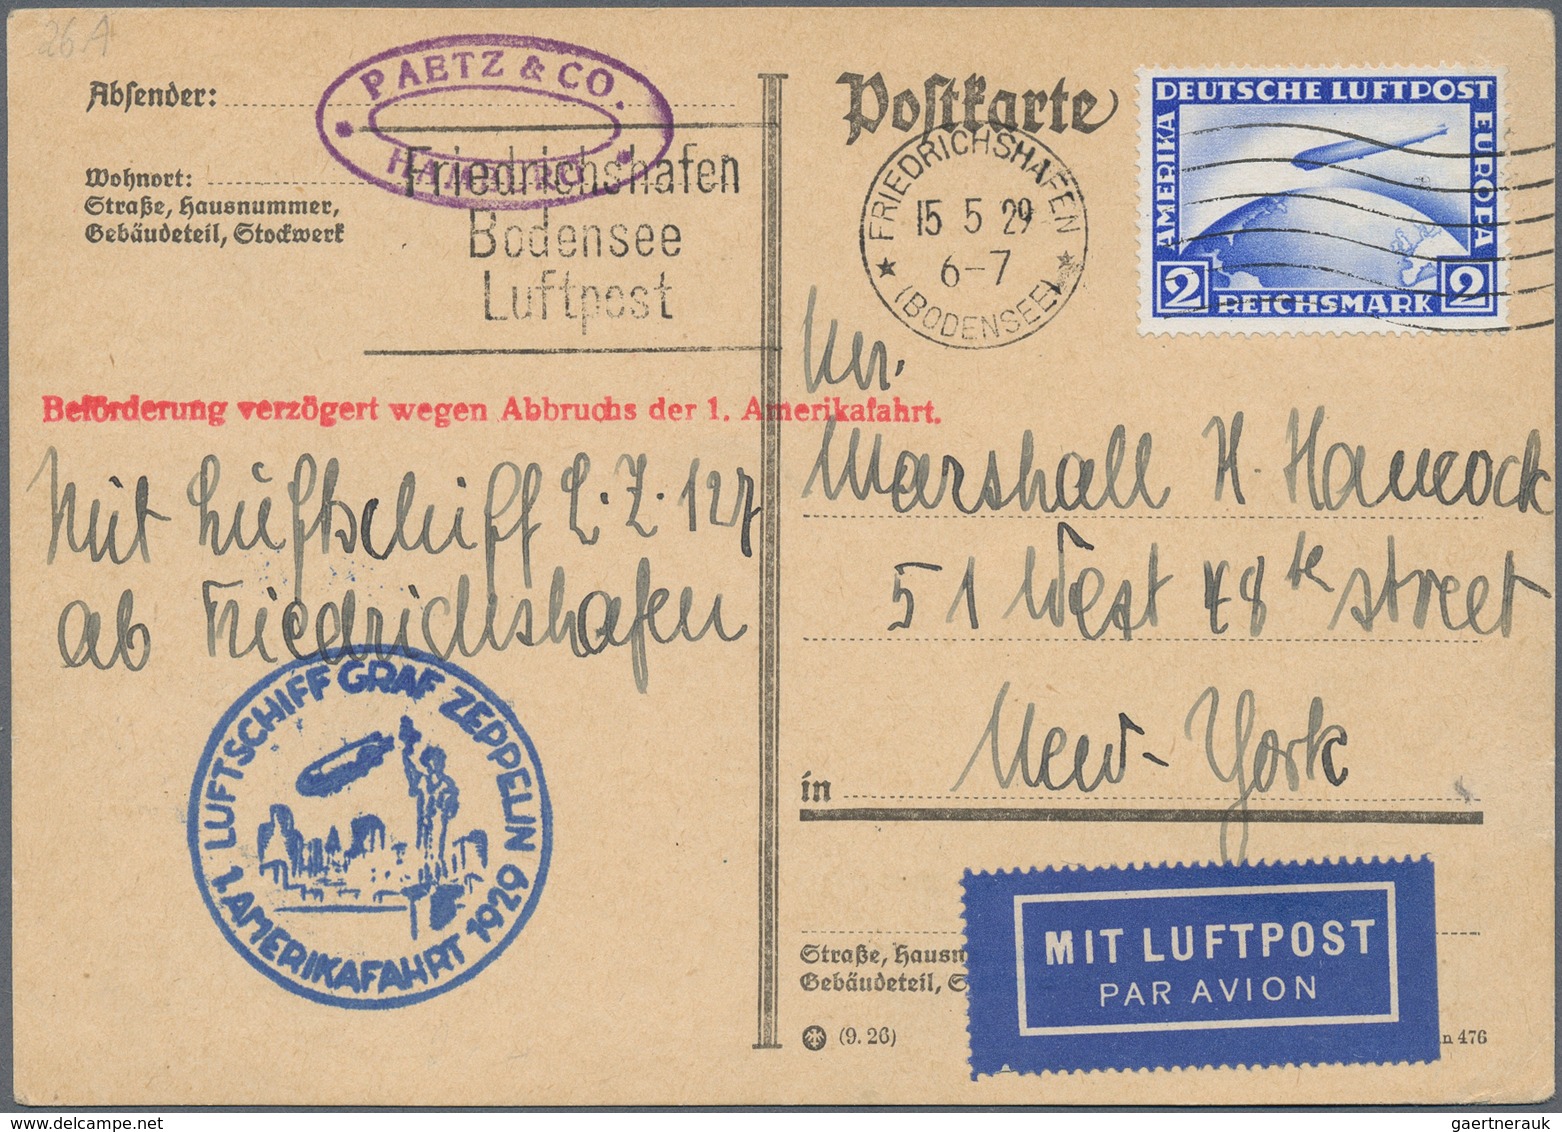 26 A
PAETZ & CO.
HAMBURG
Absender:
Wohnort:
Straße, Hausnummer,
Gebäudeteil, Stockwerk
Friedrichshafen
Bodensee
Luftpost
Postkarte
FRIEDRICHSHAFEN
15 5 29
6-7
(BODENSEE)
DEUTSCHE LUFTPOST
AMERIKA
EUROPA
2 REICHSMARK 2
Beförderung verzögert wegen Abbruchs der 1. Amerikafahrt.
Mit Luftschiff L.Z. 127
ab Friedrichshafen
LUFTSCHIFF GRAF ZEPPELIN
1. AMERIKAFAHRT 1929
Mr.
Marshall H. Hancock
51 West 48te street
in New-York
Straße, Hausn
Gebäudeteil, S
MIT LUFTPOST
PAR AVION
(9.26)
n 476
gaertnerauk